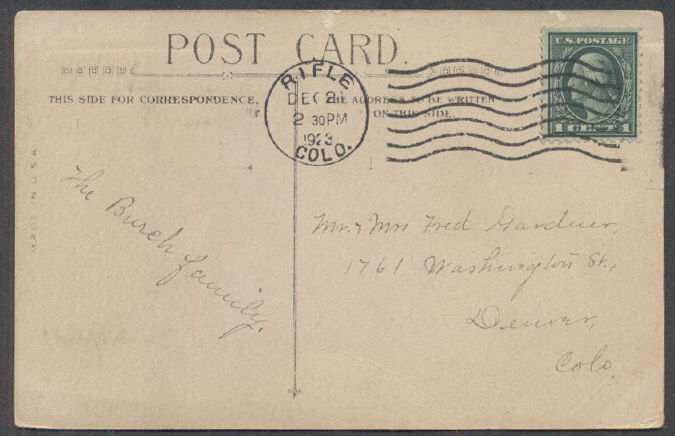 POST CARD.
THIS SIDE FOR CORRESPONDENCE.
THE ADDRESS TO BE WRITTEN
ON THIS SIDE.
RIFLE
DEC 21
2 30PM
1923
COLO.
U.S. POSTAGE
1 CENT 1
MADE IN U.S.A.
The Burch family.
Mr. & Mrs Fred Gardner,
1761 Washington St.,
Denver,
Colo.